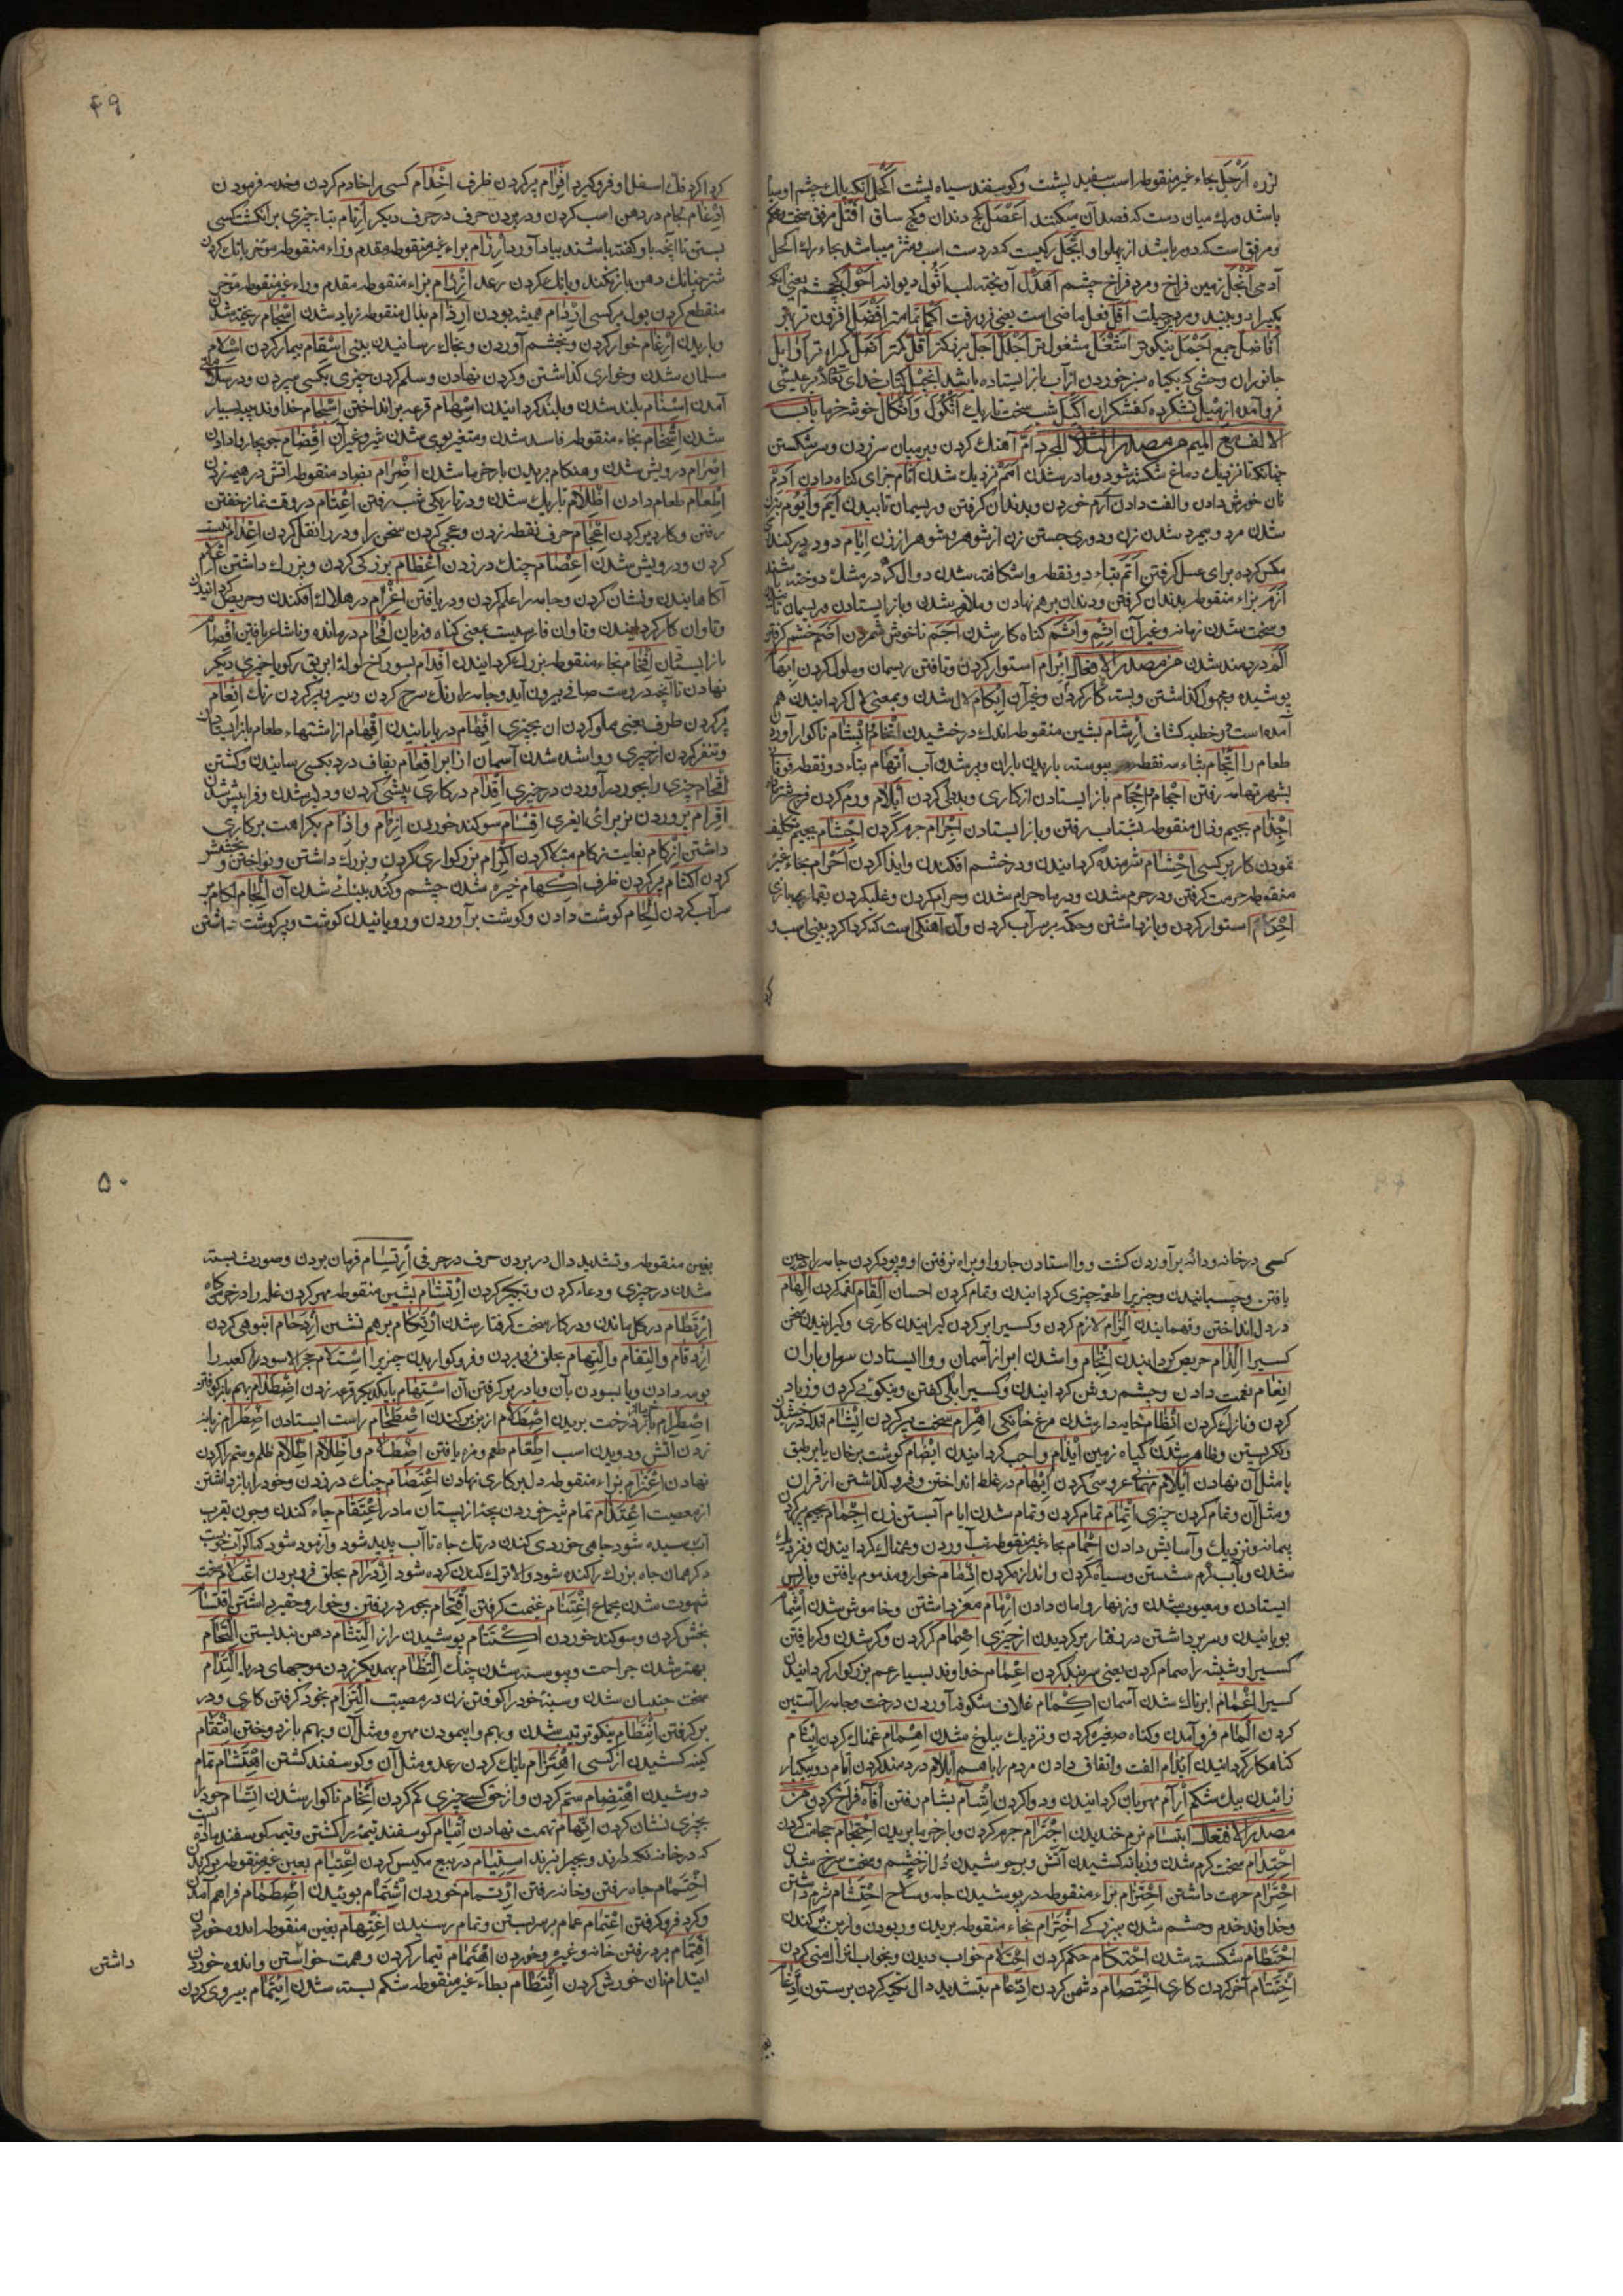 ۴۹
لرزه اَرْحَل بحاء غیر منقوطه اسب سفید پشت و کوسفند سیاه پشت اَکْحَل آنکه پلک چشم او سیاه
باشد و رک میان دست که فصد آن میکنند اَعْصَل کج دندان و کج ساق اَفْتَل مرفق سخت
و مرفقی است که دور باشد از پهلو او
آدمی اَنْجَل زمین فراخ و مرد فراخ چشم اَهْدَل آویخته لب اَثْوَل دیوانه اَحْوَل کج چشم یعنی آنکه
یکی را دو بیند و مرد پرحیلت اَفَلَ فعل ماضی است یعنی فرو رفت اَکْمَل تمامتر اَفْضَل افزون تر
اَفاضِل جمع اَجْمَل نیکوتر اَشْغَل مشغول تر اَجْلَل اَجَل بزرکتر اَقَل کمتر
جانوران وحشی که بکیاه سبز خوردن از آب باز ایستاده باشد اِنْجیل کتاب خدای تعالی بر عیسی
فرو آمده
الالف مع المیم من مصدر الثلاثی المجرد اَمّ آهنک کردن و بر میان سر زدن و سر شکستن
چنانکه تا نزدیک دماغ شکسته شود و مادر شدن اَمَم نزدیک شدن اَثام جزای کناه دادن اَدْم
نان خورش دادن و الفت دادن اَرْم خوردن و بدندان کرفتن و ریسمان تابیدن
شدن مرد و بیمرد شدن زن و دوری جستن زن از شوهر و شوهر از زن اِیام دود در کند
مکس کرده برای عسل کرفتن اَتْم بتاء دو نقطه واشکافته شدن دوال که در مشک دوخته باشند
اَزْم بزاء منقوطه بدندان کرفتن و دندان بر هم نهادن و ملازم شدن و باز ایستادن و ریسمان تابیدن
و سخت شدن زمانه و غیر آن اِثْم و اَثَم کناه کار شدن اَجَم ناخوش شمردن اَضَم خشم کرفتن
اَلَم دردمند شدن من مصدر الافعال اِبْرام استوار کردن و تافتن ریسمان و ملول کردن اِبْهام
پوشیده و مجهول کذاشتن و بسته کار کردن و غیر آن اِبْکام لال شدن و بمعنی لال کردانیدن هم
آمده است در خطبه کشاف اِرْشام بشین منقوطه اندک درخشیدن
طعام را اِثْجام بثاء سه نقطه پیوسته باریدن باران و پر شدن آب اِتْهام بتاء دو نقطه فوقانی
بشهر تهامه رفتن اِحْجام باز ایستادن از کاری و بددلی کردن اِبْلام ورم کردن فرج شتر ماده
اِجْذام بجیم و ذال منقوطه بشتاب رفتن و باز ایستادن اِجْرام جرم کردن اِجْشام بجیم تکلیف
نمودن کار بر کسی اِحْشام شرمنده کردانیدن و در خشم افکندن و ایذا کردن اِحْرام بحاء غیر
منقوطه حرمت کرفتن و در حرم شدن و در ماه حرام شدن و حرام کردن و غلبه کردن بقمار بهر بازی
اِحْکام استوار کردن و باز داشتن و حکمه بر سر اسب کردن و آن آهنکی است که کرداکرد بینی اسب و
کردا
کرداکرد فک اسفل او فرو کیرد اِفْرام پر کردن ظرف اِخْدام کسی را خادم کردن و خدمه فرمودن
اِدْغام لجام در دهن اسب کردن و در بردن حرف در حرف دیکر اِرْتام بتاء چیزی بر انکشت کسی
بستن تا آنچه باو کفته باشند بیاد آورد اِرْزام براء غیر منقوطه مقدم و زاء منقوطه مؤخر بانک کردن
شتر چنانک دهن باز نکند و بانک کردن رعد اِزْرام بزاء منقوطه مقدم و راء غیر منقوطه مؤخر
منقطع کردن بول بر کسی اِرْدام همیشه بودن اِرْذام بذال منقوطه زیاد شدن اِسْجام ریخته شدن
و باریدن اِرْغام خوار کردن و بخشم آوردن و بخاک رسانیدن بینی اِسْقام بیمار کردن اِسْلام
مسلمان شدن و خواری کذاشتن و کردن نهادن و سلم کردن چیزی بکسی سپردن و در سلامتی
آمدن اِسْنام بلند شدن و بلند کردانیدن اِسْهام قرعه بر انداختن اِشْحام خداوند پیه بسیار
شدن اِشْخام بخاء منقوطه فاسد شدن و متغیر بوی شدن شیر و غیر آن اِقْضام جو بچاروا دادن
اِصْرام درویش شدن و هنکام بریدن بار خرما شدن اِضْرام بضاد منقوطه آتش در هیمه زدن
اِطْعام طعام دادن اِظْلام تاریک شدن و در تاریکی شب رفتن اِعْتام در وقت نماز خفتن
رفتن و کار دیر کردن اِعْجام حرف نقطه زدن و عجمی کردن سخن را و در را نقل کردن اِعْدام نیست
کردن و درویش شدن اِعْصام چنک در زدن اِعْظام بزرکی کردن و بزرک داشتن اِعْلام
آکاهانیدن و نشان کردن و جامه را علم کردن و دریافتن اِغْرام در هلاک افکندن و حریص کردانیدن
و تاوان کار کردانیدن و تاوان فارسیست بمعنی کناه و زیان اِفْحام درمانده و ناشاعر یافتن اِفْصام
باز ایستادن اِفْخام بخاء منقوطه بزرک کردانیدن اِفْدام بسوراخ لوله ابریق رکو یا چیزی دیکر
نهادن تا آنچه دروست صافی بیرون آید و جامه را رنک سرخ کردن و سیر و پر کردن رنک اِفْعام
پر کردن ظرف یعنی مملو کردن آن بچیزی اِفْهام دریابانیدن اِقْهام از اشتهاء طعام باز ایستادن
و تنفر کردن از چیزی و واشده شدن آسمان از ابر اِقْعام بقاف درد بکسی رسانیدن و کشتن
اِقْحام چیزی را بجور در آوردن در چیزی اِقْدام در کاری پیشی کردن و دلیر شدن و فرا پیش شدن
اِقْرام پروردن نر برای ایغری اِقْسام سوکند خوردن اِلْزام و اِذْام بکراهت بر کاری
داشتن اِزْکام بغایت زکام مبتلا کردن اِکْرام بزرکواری کردن و بزرک داشتن و نواختن و بخشش
کردن اِکْتام پر کردن ظرف اِکْهام خیره شدن چشم و کند بینائی شدن آن اِلْجام لکام بر
سر آب کردن اِلْحام کوشت دادن و کوشت بر آوردن و رویانیدن کوشت و پر کوشت داشتن
۵۰
کسی در خانه و دانه بر آوردن کشت و وا ایستادن چاروا و براه نرفتن او و پود کردن جامه را حین
بافتن و چسبانیدن و چیزیرا طعمه چیزی کردانیدن و تمام کردن احسان اِلْقام لقمه کردن اِلْهام
در دل انداختن و فهمانیدن اِلْزام لازم کردن و کسیرا بر کردن کیرانیدن کاری و کیرانیدن سخن
کسیرا اِلْذام حریص کردانیدن اِنْجام واشدن ابر از آسمان و وا ایستادن سرما و باران
اِنْعام نعمت دادن و چشم روشن کردانیدن و کسیرا بلی کفتن و نیکوئی کردن و زیاد
کردن و نازک کردن اِنْظام خایه دار شدن مرغ خانکی اِهْرام سخت پیر کردن اِیْشام اندک درخشیدن
و نکریستن و ظاهر شدن کیاه زمین اِیْذام واجب کردانیدن اِیْضام کوشت بر خان یا بر طبق
یا مثل آن نهادن اِیْلام مهمانی عروسی کردن اِیْهام در غلط انداختن و فرو کذاشتن از قران
و مثل آن و تمام کردن چیزی اِتْمام تمام کردن و تمام شدن ایام آبستن زن اِجْمام بجیم پر کردن
پیمانه و نزدیک و آسایش دادن اِحْمام بحاء غیر منقوطه تب آوردن و غمناک کردانیدن و نزدیک
شدن و بآب کرم شستن و سیاه کردن و اندازه کردن اِذْمام خوار و مذموم یافتن و باز پس
ایستادن و معیوب شدن و زنهار و امان دادن اِرْمام مغز داشتن و خاموش شدن اِشْمام
بویانیدن و سر برداشتن در رفتار بر کردیدن از چیزی اِصْمام کر کردن و کر شدن و کر یافتن
کسیرا و شیشه را صمام کردن یعنی سر بند کردن اِعْمام خداوند بسیار عم بزرکوار کردانیدن
کسیرا اِغْمام ابرناک شدن آسمان اِکْمام غلاف شکوفه آوردن درخت و جامه را آستین
کردن اِلْمام فرو آمدن و کناه صغیره کردن و نزدیک ببلوغ شدن اِهْمام غمناک کردن اِیْثام
کناهکار کردانیدن اِیْدام الفت و اتفاق دادن مردم را با هم اِیْلام دردمند کردن اِتْآم دو بیکبار
زائیدن بیک شکم اِرْآم مهربان کردانیدن و دوا کردن اِشْآم بشام رفتن اِفْآم فراخ کردن من
مصدر الافتعال اِبْتِسام نرم خندیدن اِجْتِرام جرم کردن و بار خرما بریدن اِحْتِجام حجامت کردن
اِحْتِدام سخت کرم شدن و زبانه کشیدن آتش و بر جوشیدن دل از خشم و سخت سرخ شدن
اِحْتِرام حرمت داشتن اِحْتِزام بزاء منقوطه در پوشیدن جامه و سلاح اِحْتِشام شرم داشتن
و خداوند خدم و حشم شدن ببزرکی اِخْتِرام بخاء منقوطه بریدن و ربودن و از بن بر کندن
اِحْتِطام شکسته شدن اِحْتِکام حکم کردن اِحْتِلام خواب دیدن و بخواب انزال منی کردن
اِخْتِتام آخر کردن کاری اِخْتِصام دشمنی کردن اِدِّعام بتشدید دال تکیه کردن بر ستون اِدِّغام
بغین
بغین منقوطه و تشدید دال در بردن حرف در حرفی اِرْتِسام فرمان بردن و صورت بسته
شدن در چیزی و دعاء کردن و تکبیر کردن اِرْتِشام بشین منقوطه مهر کردن غله را در خرمن کاه
اِرْتِطام در کل ماندن و در کار سخت کرفتار شدن اِرْتِکام بر هم نشستن اِزْدِحام انبوهی کردن
اِزْدِقام و اِلْتِقام و اِلْتِهام بحلق فرو بردن و فرو کواریدن چیزیرا اِسْتِلام حجر الاسود را و کعبه را
بوسه دادن و یا بسودن بآن و یا در بر کرفتن آن اِسْتِهام با یکدیکر قرعه زدن اِصْطِدام بهم باز کوفتن
اِصْطِرام بار درخت بریدن اِصْطِلام از بن بر کندن اِصْطِخام راست ایستادن اِضْطِرام زبانه
زدن آتش و دویدن اسب اِطِّعام طعم و مزه یافتن اِضْطِلام و اِظِّلام اِطِّلام ظلم و ستم را کردن
نهادن اِعْتِزام بزاء منقوطه دل بر کاری نهادن اِعْتِصام چنک در زدن و خود را باز داشتن
از معصیت اِعْتِدام تمام شیر خوردن بچه از پستان مادر اِعْتِقام چاه کندن و چون بقرب
آب رسیده شود چاهی خوردی کندن در تک چاه تا آب پدید شود و آزموده شود که اکر آب خوبست
دکر همان چاه بزرک را کنده شود و الا ترک کندن کرده شود اِزْدِرام بحلق فرو بردن اِغْتِلام سخت
شهوت شدن بجماع اِغْتِنام غنیمت کرفتن اِقْتِحام بجور در رفتن و خوار و حقیر داشتن اِقْتِسام
بخش کردن و سوکند خوردن اِکْتِتام پوشیدن راز اِلْتِثام دهن بند بستن اِلْتِحام
بهتر شدن جراحت و پیوسته شدن جنک اِلْتِطام بهمدیکر زدن موجهای دریا اِلْتِدام
سخت جنبان شدن و سینه خود را کوفتن زن در مصیبت اِلْتِزام بخود کرفتن کاری و در
بر کرفتن اِنْتِظام نیکو ترتیب شدن و بهم وا پیمودن مهره و مثل آن و بهم باز دوختن اِنْتِقام
کینه کشیدن از کسی اِهْتِزام بانک کردن رعد و مثل آن و کوسفند کشتن اِهْتِشام تمام
دوشیدن اِهْتِضام ستم کردن و از حق کسی چیزی کم کردن اِتِّخام ناکوار شدن اِتِّسام خود را
بچیزی نشان کردن اِتِّهام تهمت نهادن اِتْیام کوسفند تیمه را کشتن و تیمه کوسفند ماده است
که در خانه نکه دارند و بچرا نبرند اِسْتِیام در بیع مکیس کردن اِعْتِیام بعین غیر منقوطه بر کزیدن
اِخْتِمام چاه رفتن و خانه رفتن اِرْتِمام خوردن اِشْتِمام بوئیدن اِضْطِمام فراهم آمدن
و کرد فرو کرفتن اِعْتِمام عمامه بر سر بستن و تمام رسیدن اِغْتِمام بغین منقوطه اندوه خوردن
اِقْتِمام برد رفتن خانه و غیره و خوردن اِهْتِمام تیمار کردن و همت خواستن و اندوه خوردن
ایتدام نان خورش کردن اِئْتِطام بطاء غیر منقوطه شکم بسته شدن اِیْتِمام پیروی کردن
داشتن